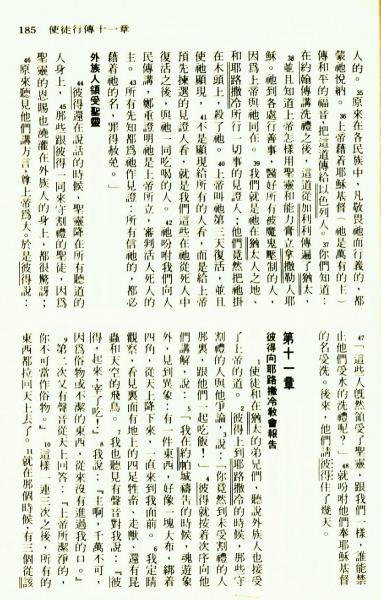 185 使徒行傳十一章
人的。35原來在各民族中,凡敬畏祂而行義的,都
蒙祂悅納。36上帝藉着耶穌基督(祂是萬有的主)
傳和平的福音,把這道傳給以色列人。37你們知道:
在約翰傳講洗禮之後,這道從加利利傳遍了猶太。
38並且知道上帝怎樣用聖靈和能力膏立拿撒勒人耶
穌。祂到各處行善事,醫好所有被魔鬼壓制的人,
因爲上帝與祂同在。39我們就是祂在猶太人之地
和耶路撒冷所行一切事的見證人;他們竟然把祂掛
在木頭上,殺了祂。40上帝叫祂第三天復活,並且
使祂顯現,41不是顯現給所有的人看,而是給上帝
預先揀選的見證人看,就是我們這些在祂從死人中
復活之後,與祂一同吃喝的人。42祂吩咐我們向人
民傳講,鄭重證明祂是上帝所立,審判活人死人的
主。43所有先知都爲祂作見證:所有信祂的,都必
藉着祂的名,罪得赦免。」
外族人領受聖靈
44彼得還在說話的時候,聖靈降在所有聽道的
人身上,45那些跟彼得一同來守割禮的聖徒,因爲
聖靈的恩賜也澆灌在外族人的身上,都很驚訝;
46原來聽見他們講方言,尊上帝爲大。於是彼得說:
47「這些人旣然領受了聖靈,跟我們一樣,誰能禁
止他們受水的洗禮呢?」48就吩咐他們奉耶穌基督
的名受洗。後來,他們請彼得住了幾天。
第十一章
彼得向耶路撒冷敎會報告
1使徒和在猶太的弟兄們,聽說外族人也接受
了上帝的道。2彼得上到耶路撒冷的時候,那些守
割禮的人與他爭論,3說:「你竟然到未受割禮的人
那裏,跟他們一起吃飯!」4彼得就按着次序向他
們講解,說:5「我在約帕城禱告的時候,魂遊象
外,見到異象:有一件東西,好像一塊大布,綁着
四角,從天上降下來,一直來到我面前。6我定睛
觀察,看見裏面有地上的四足牲畜、走獸,還有昆
蟲和天空的飛鳥。7我也聽見有聲音對我說:『彼
得,起來,宰了吃!』8我說:『主啊,千萬不可,
因爲俗物或不潔的東西,從來沒有進過我的口。』
9第二次又有聲音從天上回答:『上帝所潔淨的,
你不可當作俗物。』10這樣一連三次之後,所有的
東西都拉回天上去了。11就在那個時候,有三個從該